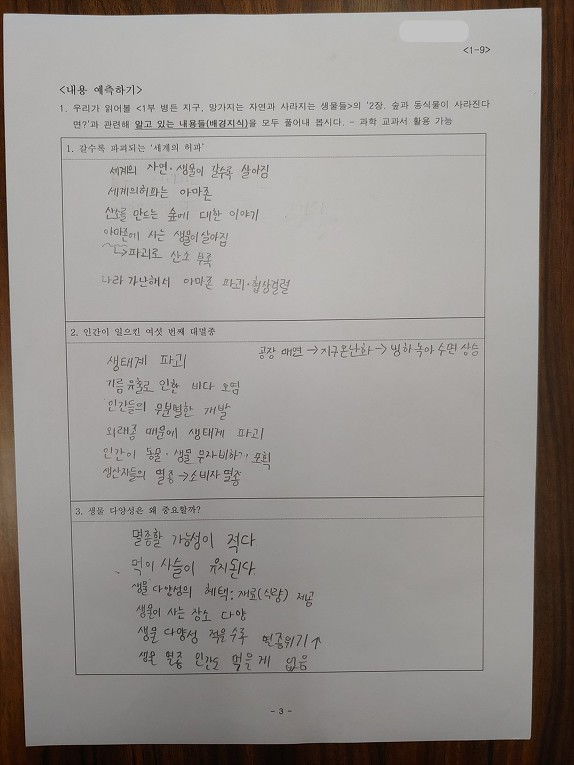 <1-9>
<내용 예측하기>
1. 우리가 읽어볼 <1부 병든 지구, 망가지는 자연과 사라지는 생물들>의 '2장. 숲과 동식물이 사라진다
면?'과 관련해 알고 있는 내용들(배경지식)을 모두 풀어내 봅시다. - 과학 교과서 활용 가능
1. 갈수록 파괴되는 '세계의 허파'
세계의 자연·생물이 갈수록 살아짐
세계의허파는 아마존
산소를 만드는 숲에 대한 이야기
아마존에 사는 생물이 살아짐
↳파괴로 산소 부족
나라 가난해서 아마존 파괴·협상결렬
2. 인간이 일으킨 여섯 번째 대멸종
공장 매연 → 지구온난화 → 빙하 녹아 수면 상승
생태계 파괴
기름 유출로 인한 바다 오염
인간들의 무분별한 개발
외래종 때문에 생태계 파괴
인간이 동물·생물 무자비하게 포획
생산자들의 멸종 → 소비자 멸종
3. 생물 다양성은 왜 중요할까?
멸종할 가능성이 적다
먹이 사슬이 유지된다.
생물 다양성의 혜택: 재료(식량) 제공
생물이 사는 장소 다양
생물 다양성 적을수록 멸종위기↑
생물 멸종 인간도 먹을 게 없음
- 3 -